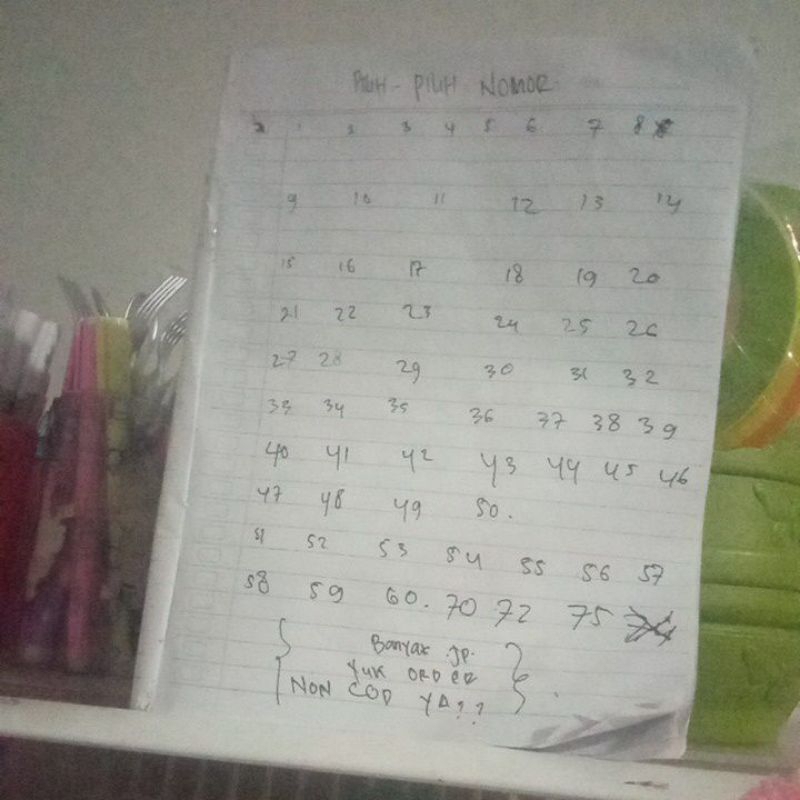 PILIH - PILIH NOMOR
1 2 3 4 5 6 7 8
9 10 11 12 13 14
15 16 17 18 19 20
21 22 23 24 25 26
27 28 29 30 31 32
33 34 35 36 37 38 39
40 41 42 43 44 45 46
47 48 49 50.
51 52 53 54 55 56 57
58 59 60. 70 72 75
Banyak JP.
YUK ORDER
NON COD YA??